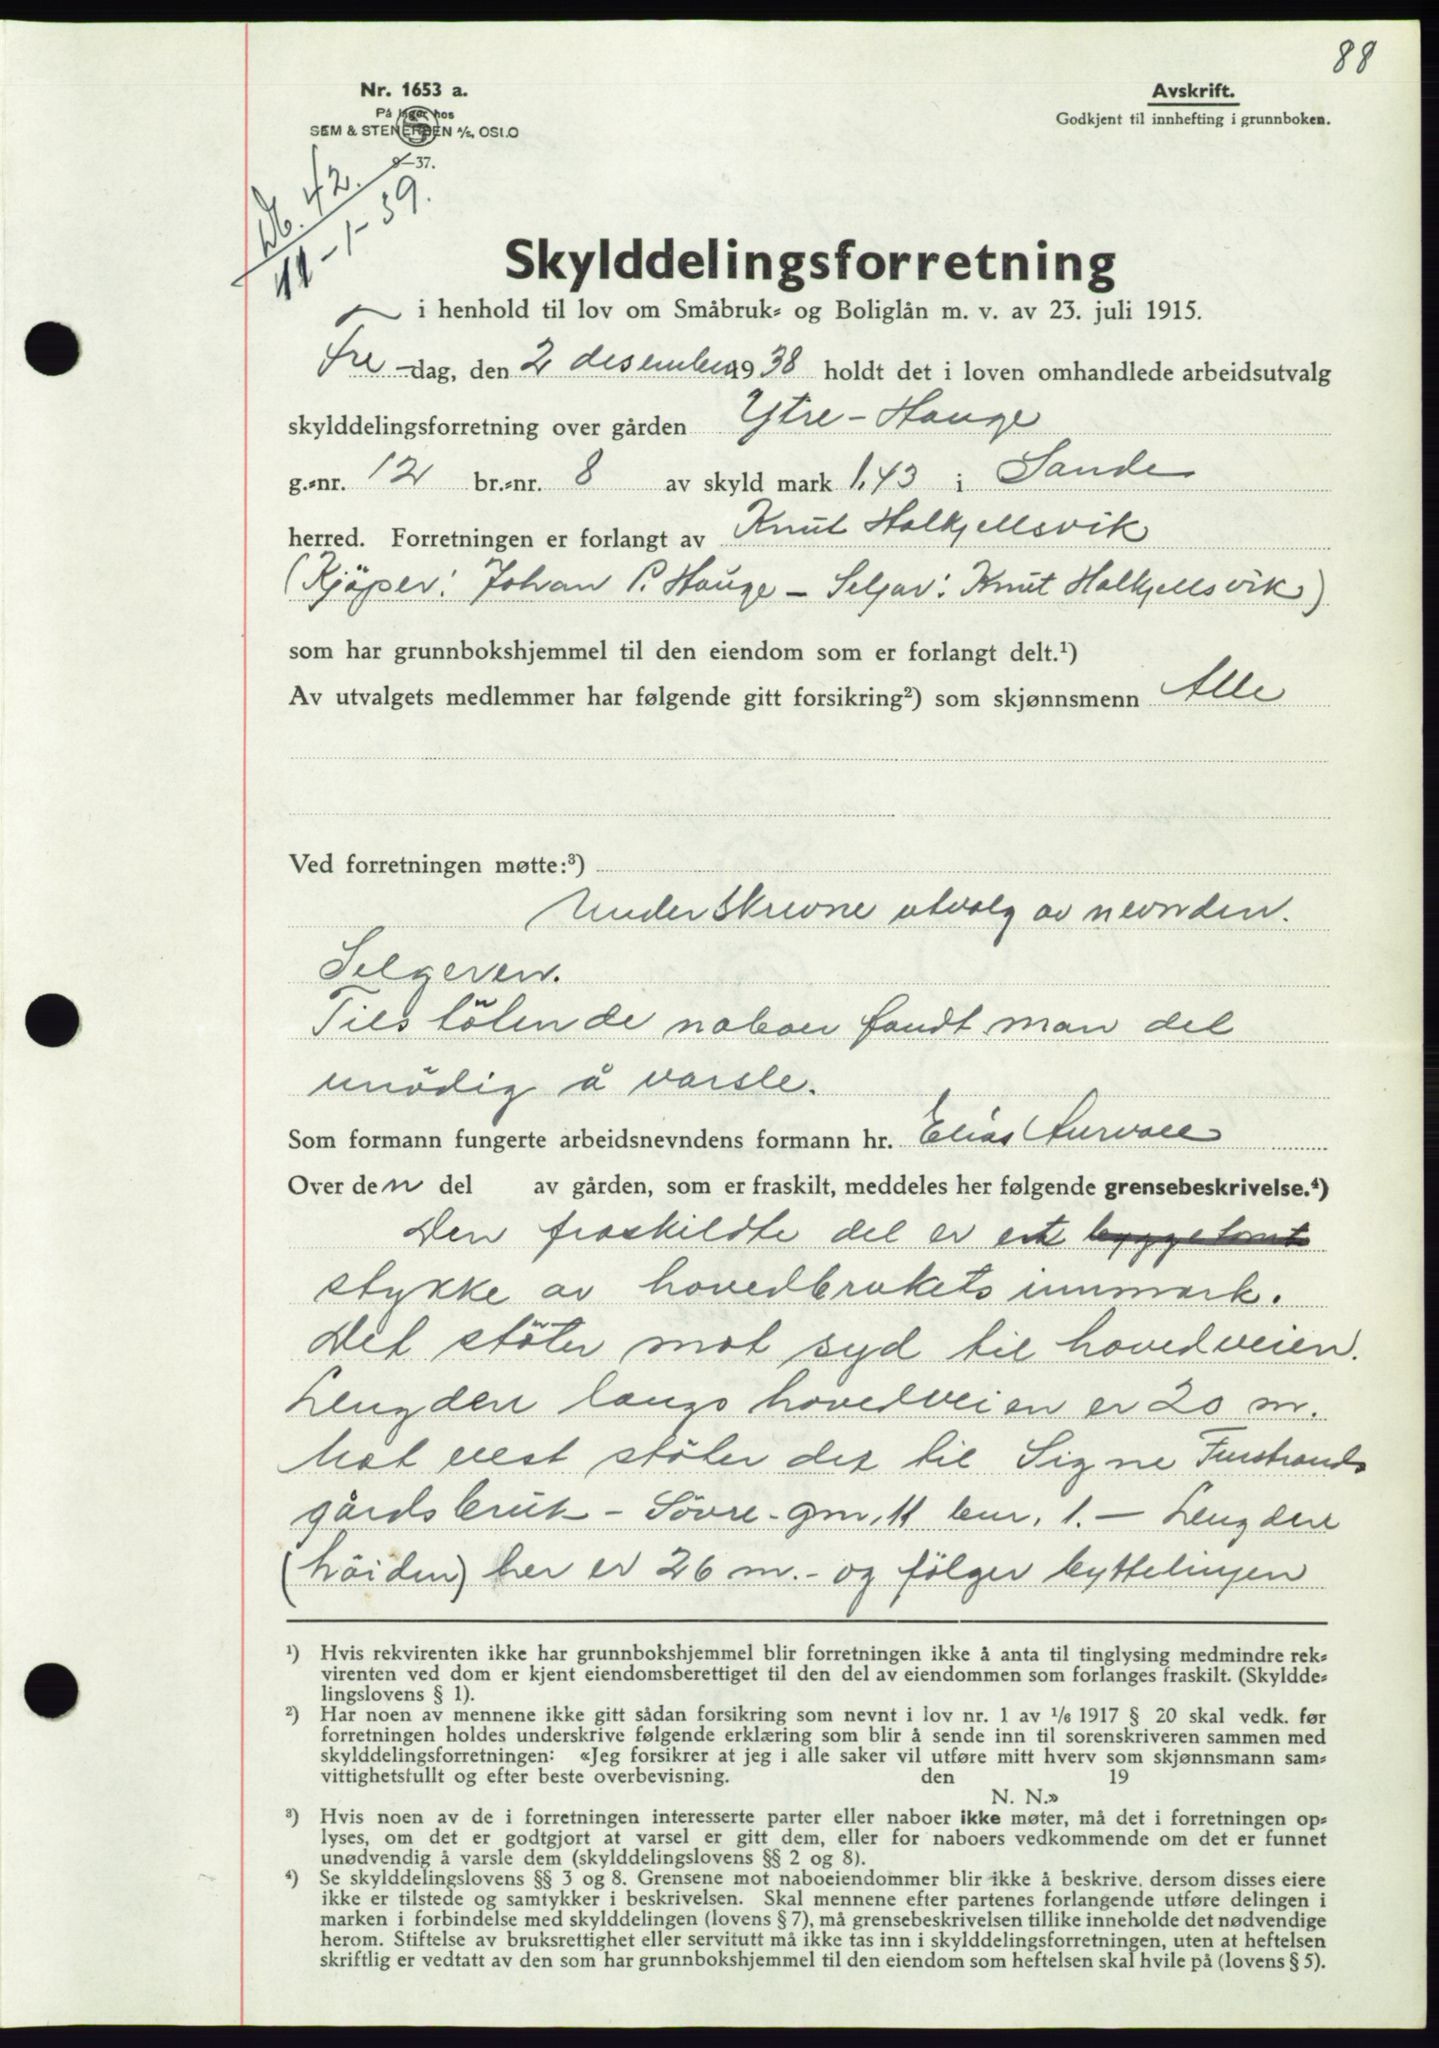 88
Nr. 1653 a.
På lager hos
SEM & STENERSEN A/S, OSLO
9-37.
Avskrift.
Godkjent til innhefting i grunnboken.
Nr. 42.
11-1-39.
Skylddelingsforretning
i henhold til lov om Småbruk- og Boliglån m. v. av 23. juli 1915.
Fre-dag, den 2 desember 1938 holdt det i loven omhandlede arbeidsutvalg
skylddelingsforretning over gården Ytre-Hauge
g.-nr. 12 br.-nr. 8 av skyld mark 1,43 i Sande
herred. Forretningen er forlangt av Knut Halkjellsvik
(Kjöper: Johan P. Hauge - Seljar: Knut Halkjellsvik)
som har grunnbokshjemmel til den eiendom som er forlangt delt.¹)
Av utvalgets medlemmer har følgende gitt forsikring²) som skjønnsmenn Alle
Ved forretningen møtte:³)
Underskrevne utvalg av nevnden.
Selgeren.
Tilstötende naboer fandt man det
unödig å varsle.
Som formann fungerte arbeidsnevndens formann hr. Elias Aurvoll
Over den del av gården, som er fraskilt, meddeles her følgende grensebeskrivelse.⁴)
Den fraskildte del er et byggetomt
stykke av hovedbrukets innmark.
Det stöter mot syd til hovedveien.
Lengden langs hovedveien er 20 m.
Mot vest stöter det til Signe Furstrands
gårdsbruk - Sövre - gnr. 11 bnr. 1. - Lengden
(höiden) her er 26 m. - og fölger byttelinjen
¹) Hvis rekvirenten ikke har grunnbokshjemmel blir forretningen ikke å anta til tinglysing medmindre rek-
virenten ved dom er kjent eiendomsberettiget til den del av eiendommen som forlanges fraskilt. (Skyldde-
lingslovens § 1).
²) Har noen av mennene ikke gitt sådan forsikring som nevnt i lov nr. 1 av 1/6 1917 § 20 skal vedk. før
forretningen holdes underskrive følgende erklæring som blir å sende inn til sorenskriveren sammen med
skylddelingsforretningen: «Jeg forsikrer at jeg i alle saker vil utføre mitt hverv som skjønnsmann sam-
vittighetsfullt og efter beste overbevisning. den 19
N. N.»
³) Hvis noen av de i forretningen interesserte parter eller naboer ikke møter, må det i forretningen op-
lyses, om det er godtgjort at varsel er gitt dem, eller for naboers vedkommende om det er funnet
unødvendig å varsle dem (skylddelingslovens §§ 2 og 8).
⁴) Se skylddelingslovens §§ 3 og 8. Grensene mot naboeiendommer blir ikke å beskrive, dersom disses eiere
ikke er tilstede og samtykker i beskrivelsen. Skal mennene efter partenes forlangende utføre delingen i
marken i forbindelse med skylddelingen (lovens § 7), må grensebeskrivelsen tillike inneholde det nødvendige
herom. Stiftelse av bruksrettighet eller servitutt må ikke tas inn i skylddelingsforretningen, uten at heftelsen
skriftlig er vedtatt av den som har grunnbokshjemmel til den eiendom som heftelsen skal hvile på (lovens § 5).